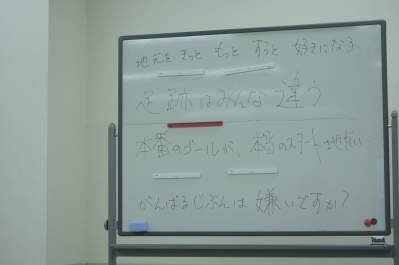 地元を きっと もっと ずっと 好きになる
足跡はみんな違う
本番のゴールが、本当のスタート地点に
がんばるじぶんは 嫌いですか?